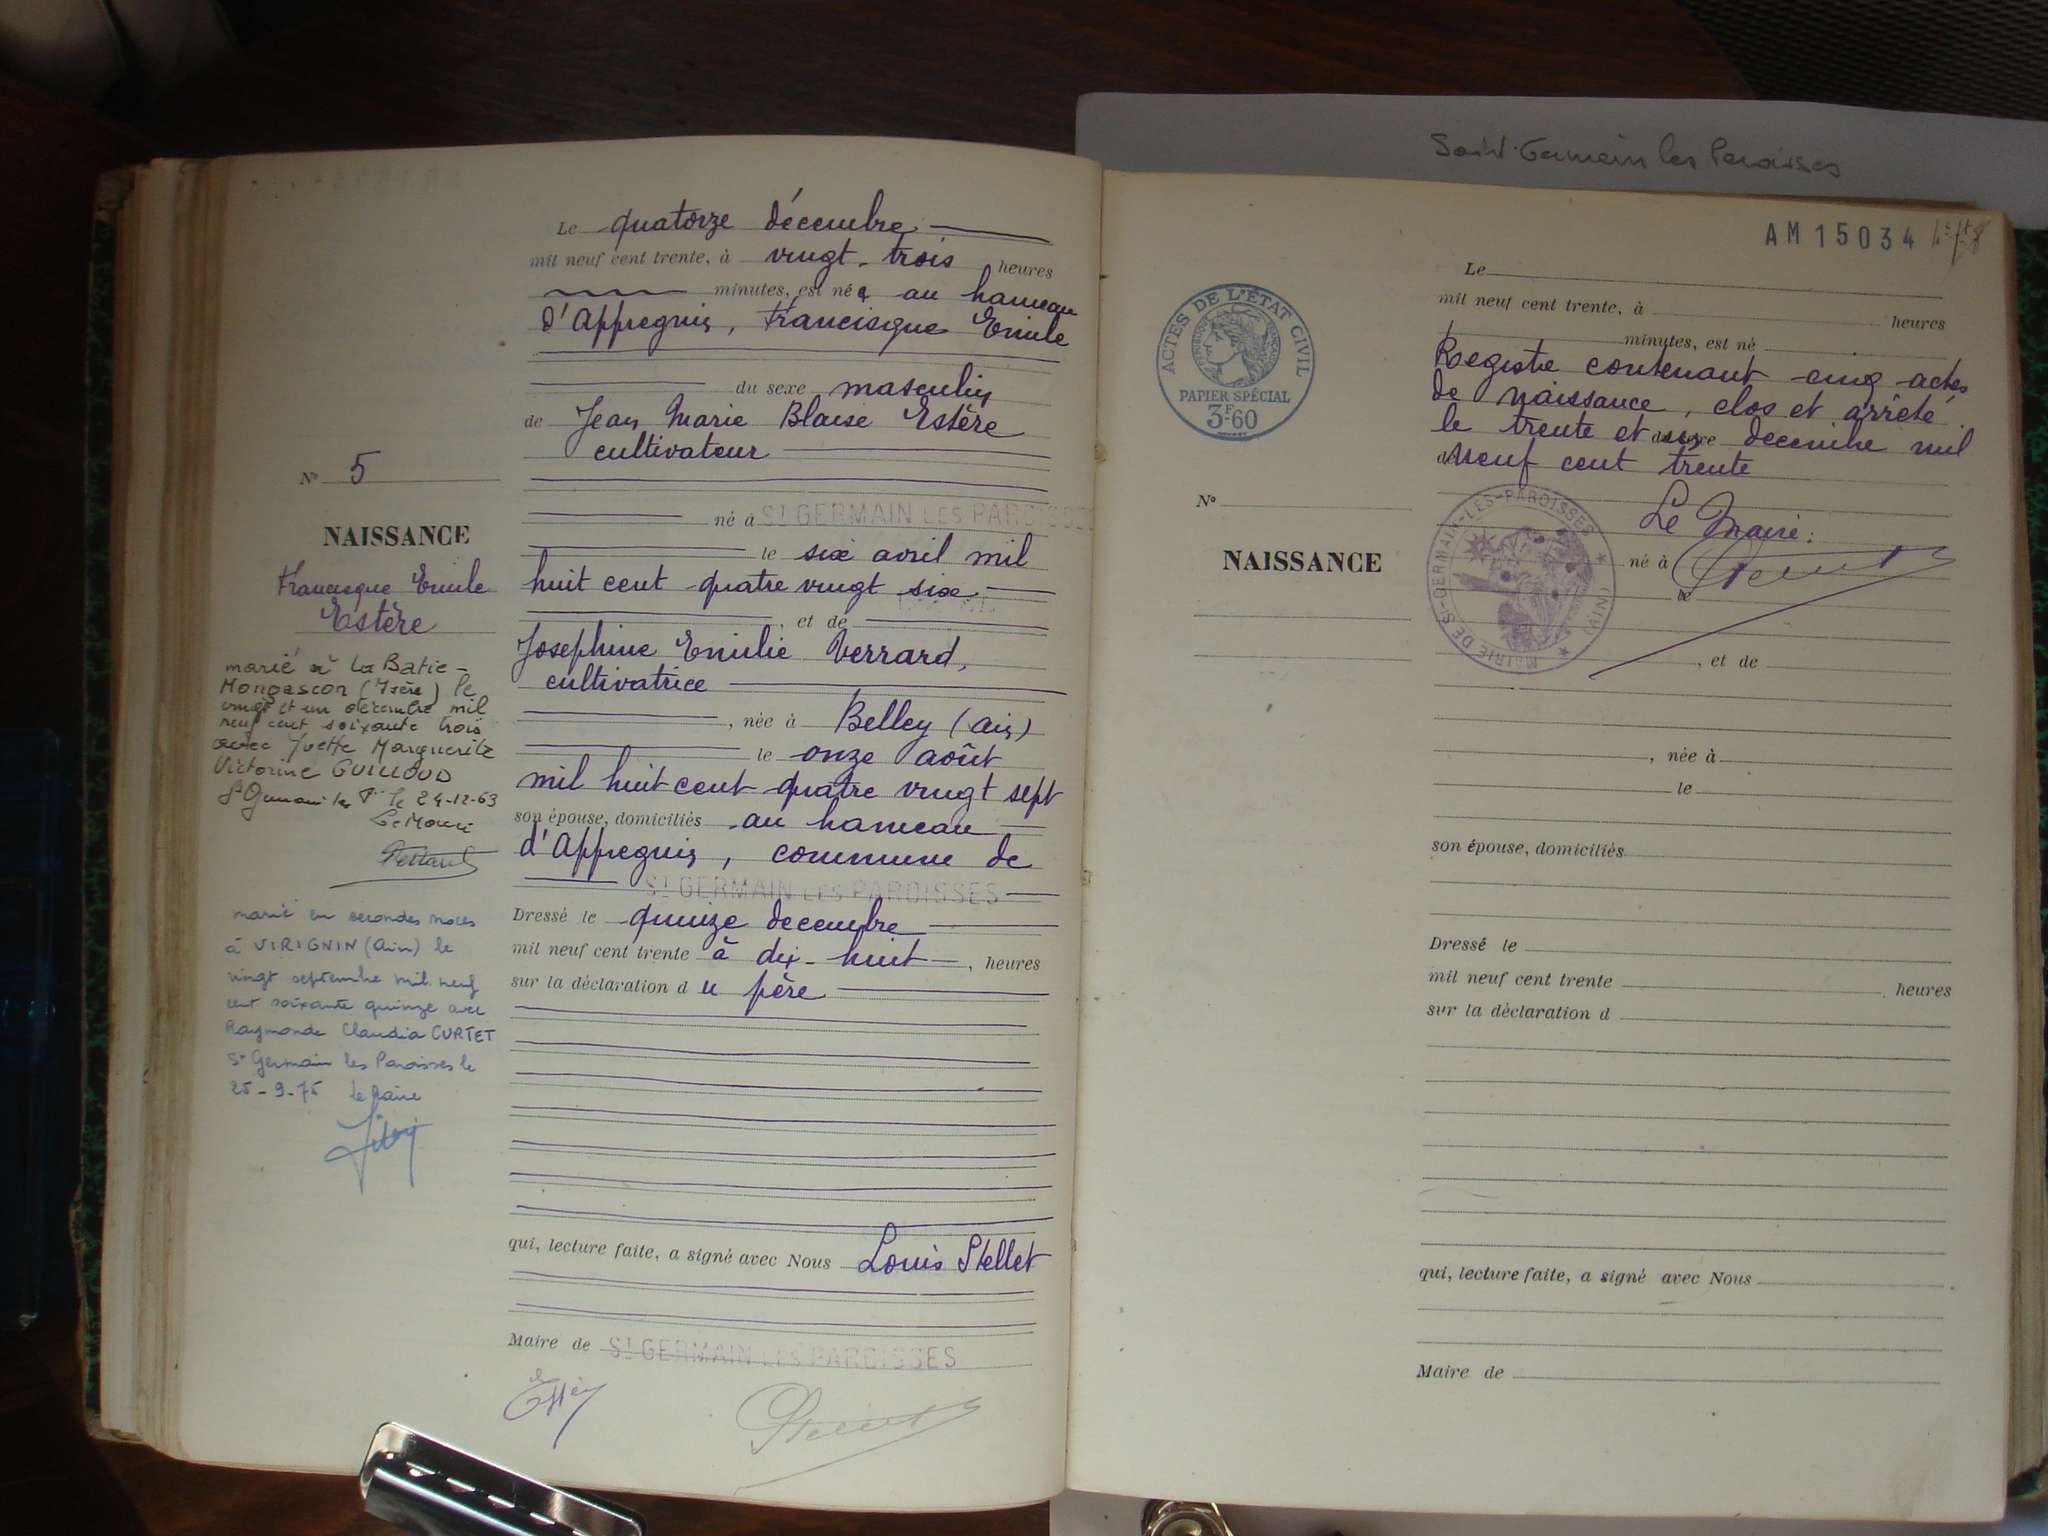 Saint-Germain les Paroisses
Le quatorze décembre
mil neuf cent trente, à vingt-trois heures
minutes, est né au hameau
d'Appregnin, Francisque Emile
du sexe masculin
de Jean Marie Blaise Estère
cultivateur
né à ST GERMAIN LES PAROISSES
le six avril mil
huit cent quatre vingt six
, et de
Josephine Emilie Verrard,
cultivatrice
, née à Belley (Ain)
le onze août
mil huit cent quatre vingt sept
son épouse, domiciliés au hameau
d'Appregnin, commune de
ST GERMAIN LES PAROISSES
Dressé le quinze decembre
mil neuf cent trente à dix-huit, heures
sur la déclaration du père
qui, lecture faite, a signé avec Nous Louis Stellet
Maire de ST GERMAIN LES PAROISSES
N° 5
NAISSANCE
Francisque Emile
Estère
marié à La Batie-
Mongascon (Isère) le
vingt et un décembre mil
neuf cent soixante trois
avec Yvette Marguerite
Victorine GUILLOUD
St Germain les P. le 24-12-63
Le Maire
marié en secondes noces
à VIRIGNIN (Ain) le
vingt septembre mil neuf
cent soixante quinze avec
Raymonde Claudia CURTET
St Germain les Paroisses le
25-9-75 Le Maire
AM15034
ACTES DE L'ÉTAT CIVIL
RÉPUBLIQUE FRANÇAISE
PAPIER SPÉCIAL
3F.60
Le
mil neuf cent trente, à heures
minutes, est né
Registre contenant cinq actes
de naissance, clos et arrêté
le trente et un decembre mil
neuf cent trente
Le Maire:
MAIRIE DE ST-GERMAIN-LES-PAROISSES (AIN)
N°
NAISSANCE
né à
le
, et de
, née à
le
son épouse, domiciliés
Dressé le
mil neuf cent trente , heures
sur la déclaration d
qui, lecture faite, a signé avec Nous
Maire de